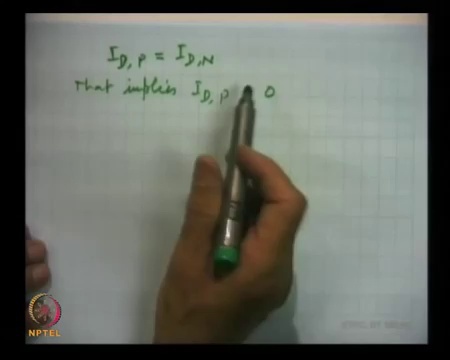 I_D,P = I_D,N
That implies I_D,P 0
NPTEL